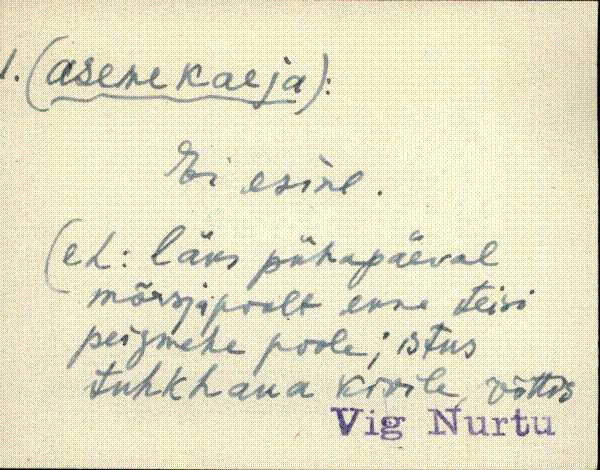 1. (asemekaeja):
Ei esine.
(eL: läks pühapäeval
mõrsjapoolt enne teisi
peigmehe poole; istus
tuhkhaua kivile, võttis
Vig Nurtu